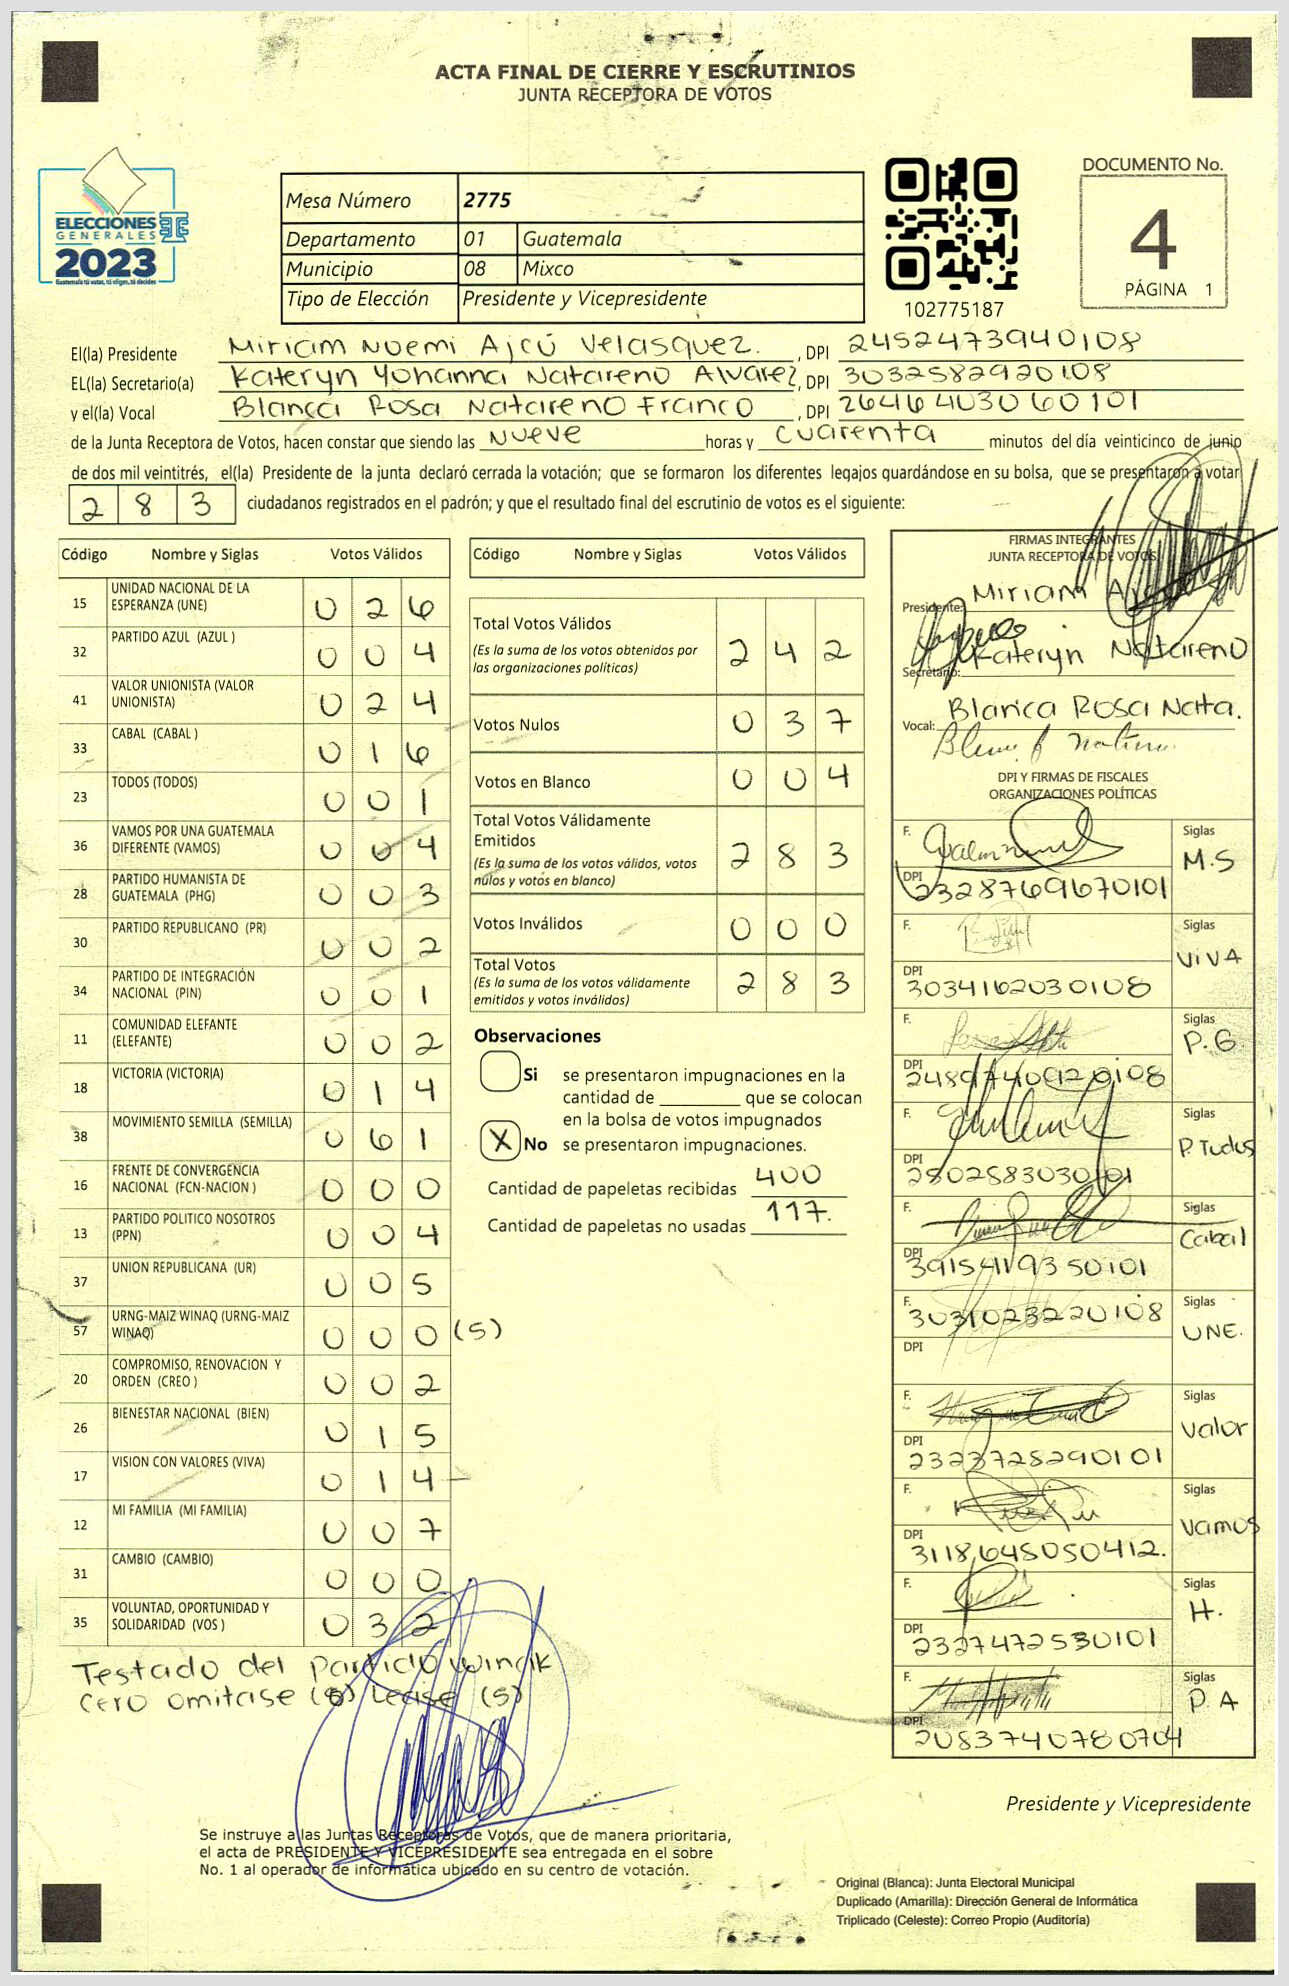 ACTA FINAL DE CIERRE Y ESCRUTINIOS
JUNTA RECEPTORA DE VOTOS
ELECCIONES
GENERALES
2023
Guatemala tú votas, tú eliges, tú decides
Mesa Número 2775
Departamento 01 Guatemala
Municipio 08 Mixco
Tipo de Elección Presidente y Vicepresidente
102775187
DOCUMENTO No.
4
PÁGINA 1
El(la) Presidente Miriam Noemi Ajcú Velasquez. , DPI 2452473940108
EL(la) Secretario(a) Kateryn Yohanna Natareno Alvarez , DPI 3032582920108
y el(la) Vocal Blanca Rosa Natareno Franco , DPI 2646403060101
de la Junta Receptora de Votos, hacen constar que siendo las Nueve horas y cuarenta minutos del día veinticinco de junio
de dos mil veintitrés, el(la) Presidente de la junta declaró cerrada la votación; que se formaron los diferentes legajos guardándose en su bolsa, que se presentaron a votar
283 ciudadanos registrados en el padrón; y que el resultado final del escrutinio de votos es el siguiente:
Código Nombre y Siglas Votos Válidos
15 UNIDAD NACIONAL DE LA ESPERANZA (UNE) 026
32 PARTIDO AZUL (AZUL ) 004
41 VALOR UNIONISTA (VALOR UNIONISTA) 024
33 CABAL (CABAL ) 016
23 TODOS (TODOS) 001
36 VAMOS POR UNA GUATEMALA DIFERENTE (VAMOS) 004
28 PARTIDO HUMANISTA DE GUATEMALA (PHG) 003
30 PARTIDO REPUBLICANO (PR) 002
34 PARTIDO DE INTEGRACIÓN NACIONAL (PIN) 001
11 COMUNIDAD ELEFANTE (ELEFANTE) 002
18 VICTORIA (VICTORIA) 014
38 MOVIMIENTO SEMILLA (SEMILLA) 061
16 FRENTE DE CONVERGENCIA NACIONAL (FCN-NACION ) 000
13 PARTIDO POLITICO NOSOTROS (PPN) 004
37 UNION REPUBLICANA (UR) 005
57 URNG-MAIZ WINAQ (URNG-MAIZ WINAQ) 000 (5)
20 COMPROMISO, RENOVACION Y ORDEN (CREO ) 002
26 BIENESTAR NACIONAL (BIEN) 015
17 VISION CON VALORES (VIVA) 014
12 MI FAMILIA (MI FAMILIA) 007
31 CAMBIO (CAMBIO) 000
35 VOLUNTAD, OPORTUNIDAD Y SOLIDARIDAD (VOS ) 032
Testado del partido winak
cero omitase (0) Lease (5)
Código Nombre y Siglas Votos Válidos
Total Votos Válidos 242
(Es la suma de los votos obtenidos por
las organizaciones politicas)
Votos Nulos 037
Votos en Blanco 004
Total Votos Válidamente
Emitidos 283
(Es la suma de los votos válidos, votos
nulos y votos en blanco)
Votos Inválidos 000
Total Votos 283
(Es la suma de los votos válidamente
emitidos y votos inválidos)
Observaciones
Si se presentaron impugnaciones en la
cantidad de ________ que se colocan
en la bolsa de votos impugnados
X No se presentaron impugnaciones.
Cantidad de papeletas recibidas 400
Cantidad de papeletas no usadas 117.
FIRMAS INTEGRANTES
JUNTA RECEPTORA DE VOTOS
Presidente: Miriam
Secretario: Kateryn Natareno
Vocal: Blanca Rosa Nata.
DPI Y FIRMAS DE FISCALES
ORGANIZACIONES POLÍTICAS
F. Siglas M.S
DPI 2328769670101
F. Siglas ViVA
DPI 3034162030108
F. Siglas P.G
DPI
F. Siglas P. Todos
DPI 2802583030101
F. Siglas Cabal
DPI 3915411935 0101
F. 3031023220108 Siglas UNE.
DPI
F. Siglas Valor
DPI 2323728290101
F. Siglas Vamos
DPI 3118648050412.
F. Siglas H.
DPI 2327472530101
F. Siglas P.A
DPI 2083740780704
Presidente y Vicepresidente
Se instruye a las Juntas Receptoras de Votos, que de manera prioritaria,
el acta de PRESIDENTE Y VICEPRESIDENTE sea entregada en el sobre
No. 1 al operador de informática ubicado en su centro de votación.
Original (Blanca): Junta Electoral Municipal
Duplicado (Amarilla): Dirección General de Informática
Triplicado (Celeste): Correo Propio (Auditoría)